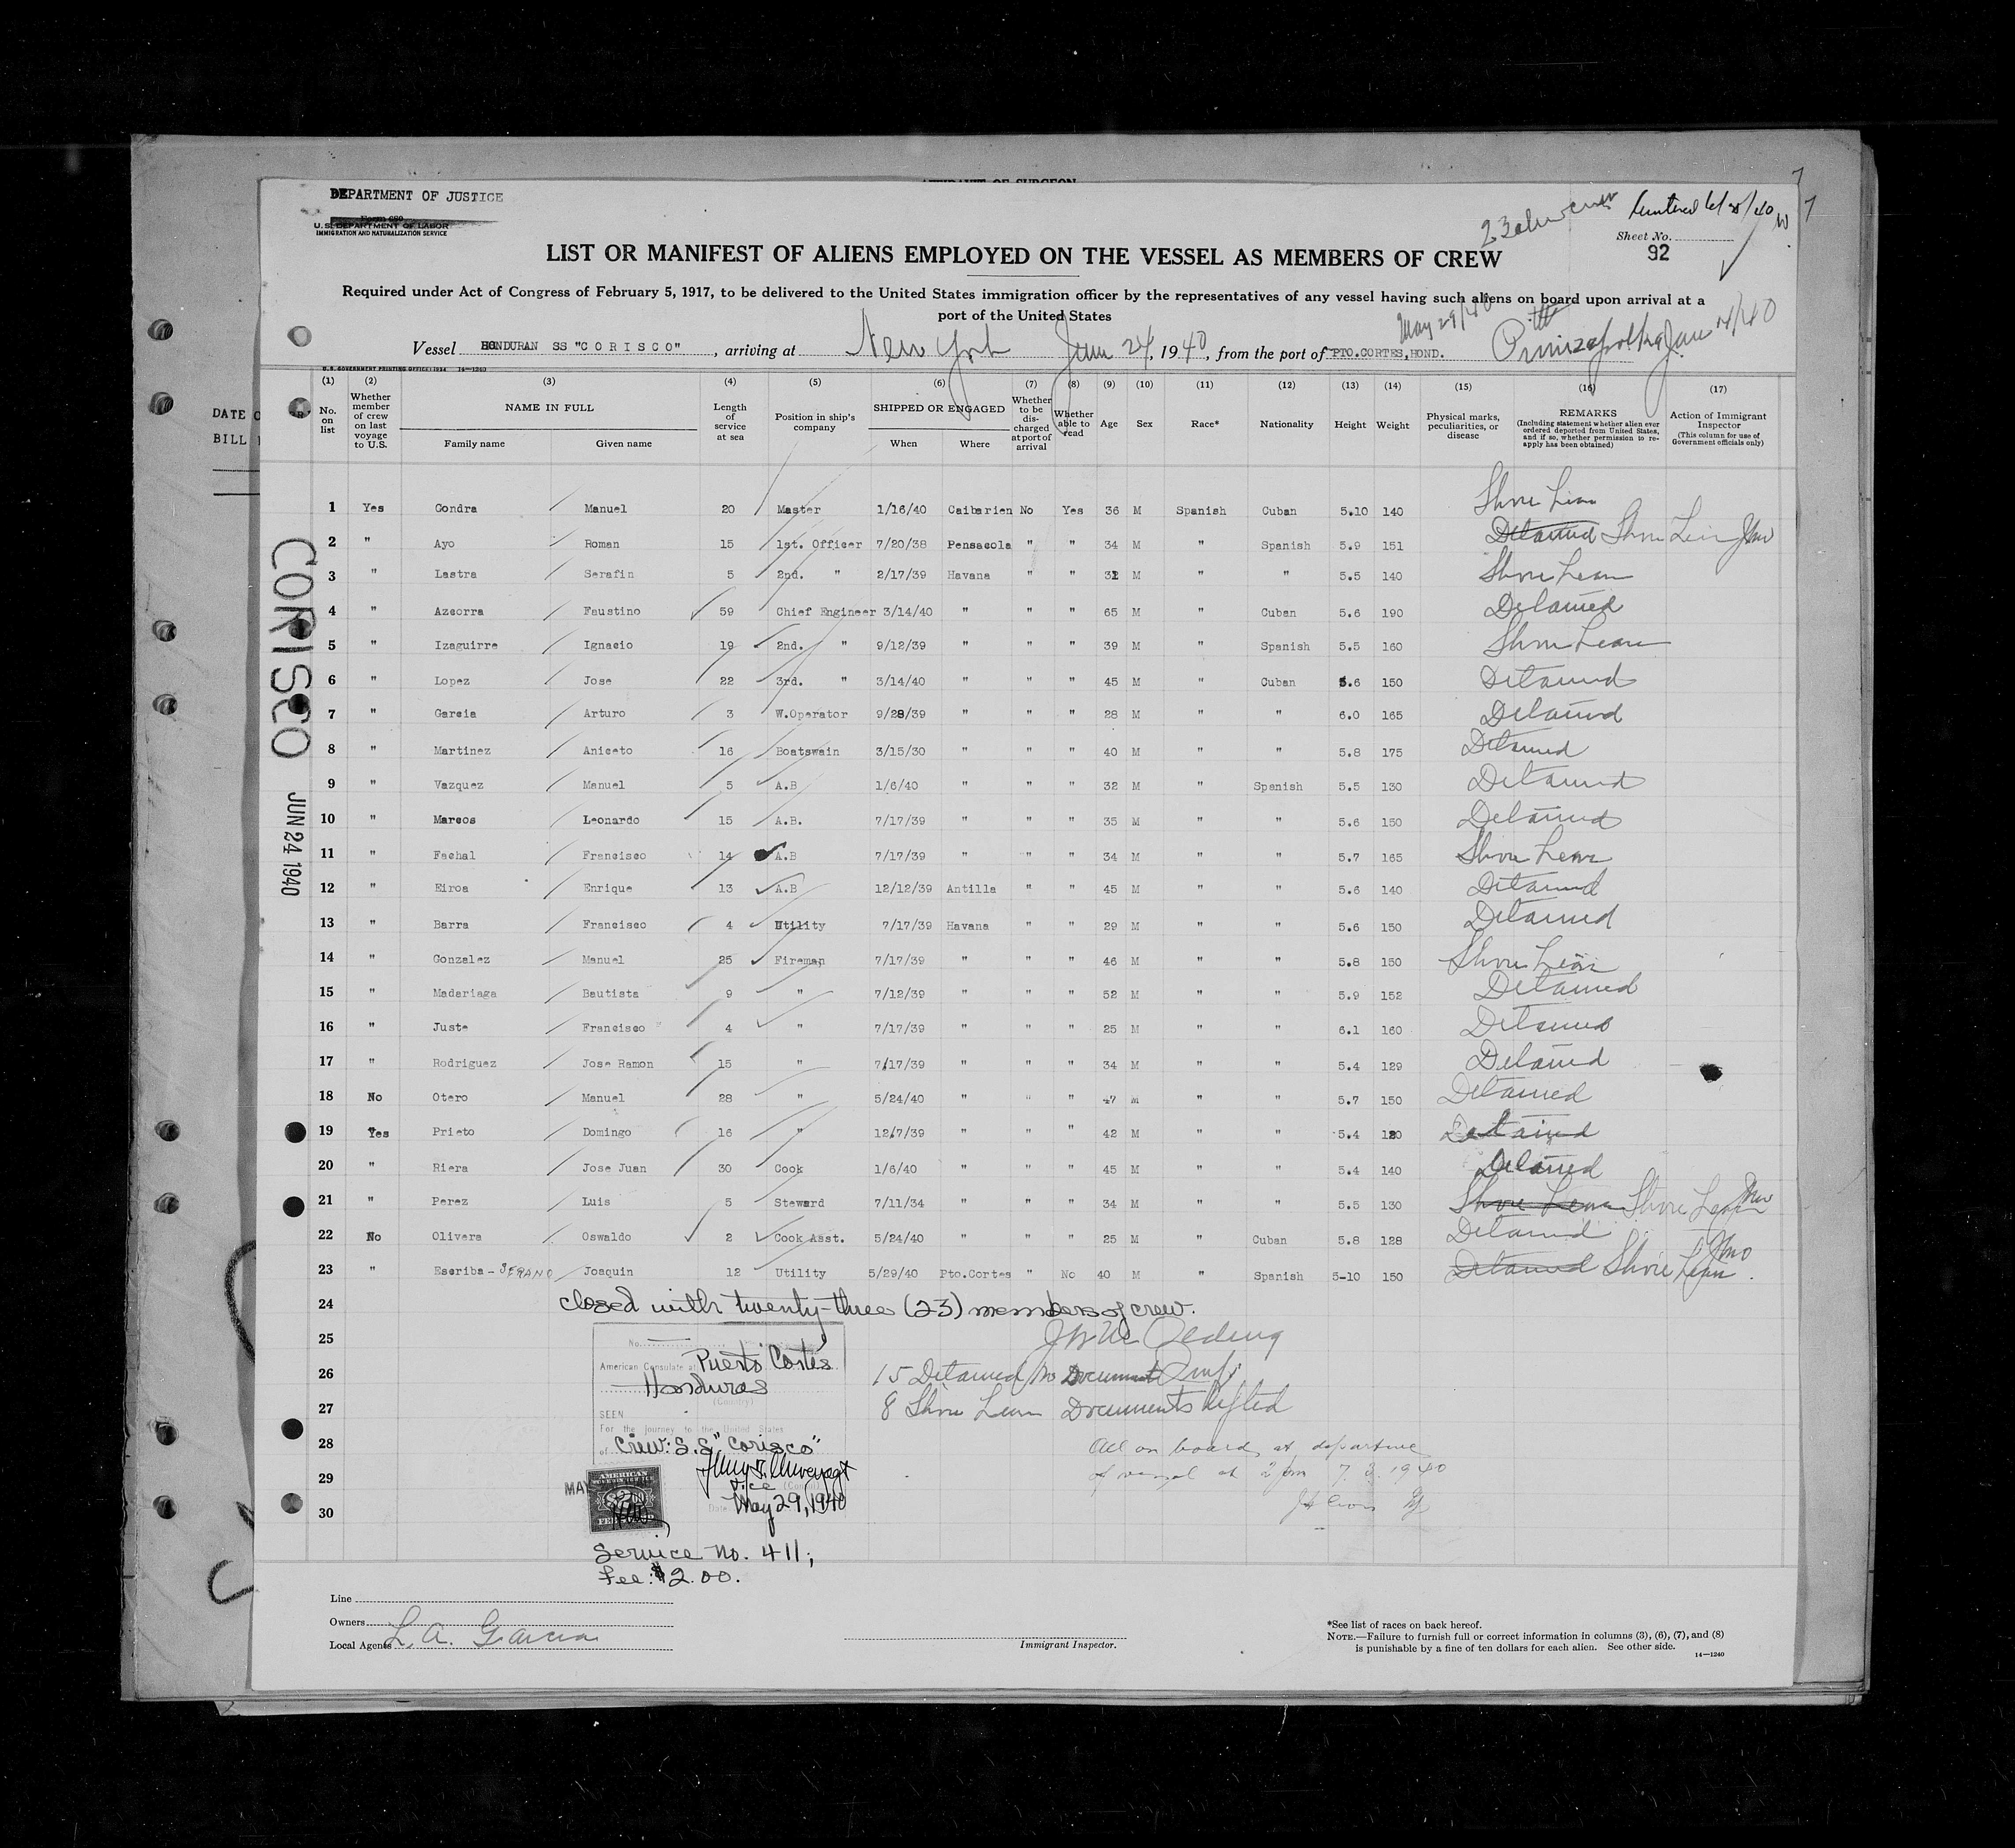 AFFIDAVIT OF SURGEON
DEPARTMENT OF JUSTICE
Form 680
U. S. DEPARTMENT OF LABOR
IMMIGRATION AND NATURALIZATION SERVICE
Sheet No.
92
LIST OR MANIFEST OF ALIENS EMPLOYED ON THE VESSEL AS MEMBERS OF CREW
Required under Act of Congress of February 5, 1917, to be delivered to the United States immigration officer by the representatives of any vessel having such aliens on board upon arrival at a
port of the United States
May 29/40
Vessel HONDURAN SS "CORISCO", arriving at New York June 24, 1940, from the port of PTO.CORTES,HOND. June 14/40
U. S. GOVERNMENT PRINTING OFFICE: 1934 14—1240
DATE O
BILL
(1) (2) (3) (4) (5) (6) (7) (8) (9) (10) (11) (12) (13) (14) (15) (16) (17)
No. on list Whether member of crew on last voyage to U.S. NAME IN FULL Family name Given name Length of service at sea Position in ship's company SHIPPED OR ENGAGED When Where Whether to be discharged at port of arrival Whether able to read Age Sex Race* Nationality Height Weight Physical marks, peculiarities, or disease REMARKS (Including statement whether alien ever ordered deported from United States, and if so, whether permission to reapply has been obtained) Action of Immigrant Inspector (This column for use of Government officials only)
1 Yes Gondra Manuel 20 Master 1/16/40 Caibarien No Yes 36 M Spanish Cuban 5.10 140 Shore Leave
2 " Ayo Roman 15 1st. Officer 7/20/38 Pensacola " " 34 M " Spanish 5.9 151 Detained Shore Leave
3 " Lastra Serafin 5 2nd. " 2/17/39 Havana " " 32 M " " 5.5 140 Shore Leave
4 " Azcorra Faustino 59 Chief Engineer 3/14/40 " " " 65 M " Cuban 5.6 190 Detained
5 " Izaguirre Ignacio 19 2nd. " 9/12/39 " " " 39 M " Spanish 5.5 160 Shore Leave
6 " Lopez Jose 22 3rd. " 3/14/40 " " " 45 M " Cuban 5.6 150 Detained
7 " Garcia Arturo 3 W.Operator 9/28/39 " " " 28 M " " 6.0 165 Detained
8 " Martinez Aniceto 16 Boatswain 3/15/30 " " " 40 M " " 5.8 175 Detained
9 " Vazquez Manuel 5 A.B 1/6/40 " " " 32 M " Spanish 5.5 130 Detained
10 " Marcos Leonardo 15 A.B. 7/17/39 " " " 35 M " " 5.6 150 Detained
11 " Fachal Francisco 14 A.B 7/17/39 " " " 34 M " " 5.7 165 Shore Leave
12 " Eiroa Enrique 13 A.B 12/12/39 Antilla " " 45 M " " 5.6 140 Detained
13 " Barra Francisco 4 Utility 7/17/39 Havana " " 29 M " " 5.6 150 Detained
14 " Gonzalez Manuel 25 Fireman 7/17/39 " " " 46 M " " 5.8 150 Shore Leave
15 " Madariaga Bautista 9 " 7/12/39 " " " 52 M " " 5.9 152 Detained
16 " Juste Francisco 4 " 7/17/39 " " " 25 M " " 6.1 160 Detained
17 " Rodriguez Jose Ramon 15 " 7/17/39 " " " 34 M " " 5.4 129 Detained
18 No Otero Manuel 28 " 5/24/40 " " " 47 M " " 5.7 150 Detained
19 Yes Prieto Domingo 16 " 12/7/39 " " " 42 M " " 5.4 120 Detained
20 " Riera Jose Juan 30 Cook 1/6/40 " " " 45 M " " 5.4 140 Detained
21 " Perez Luis 5 Steward 7/11/34 " " " 34 M " " 5.5 130 Shore Leave Shore Leave
22 No Olivera Oswaldo 2 Cook Asst. 5/24/40 " " " 25 M " Cuban 5.8 128 Detained
23 " Escriba - SERANO Joaquin 12 Utility 5/29/40 Pto.Cortes " No 40 M " Spanish 5-10 150 Detained Shore Leave
24 closed with twenty-three (23) members of crew.
25
26
27
28
29
30
CORISCO JUN 24 1940
No.
American Consulate at Puerto Cortés
Honduras
(Country)
SEEN
For the journey to the United States
of crew: S.S. "Corisco"
Vice (Consul)
Date May 29, 1940
MAY
AMERICAN
Service No. 411;
Fee: $2.00.
15 Detained no Document
8 Shore Leave Documents lifted
All on board at departure
of vessel at 2 pm 7.3.1940
Line
Owners
Local Agents L. A. Garcia
Immigrant Inspector.
*See list of races on back hereof.
NOTE.—Failure to furnish full or correct information in columns (3), (6), (7), and (8)
is punishable by a fine of ten dollars for each alien. See other side.
14—1240